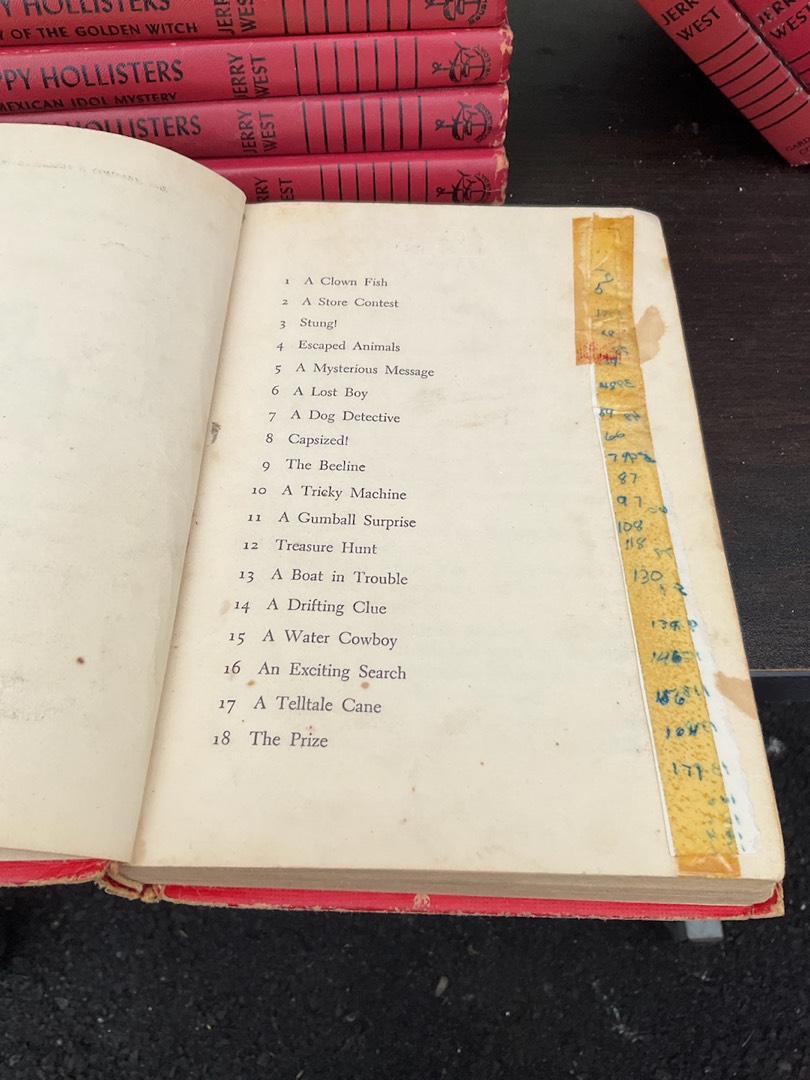 HOLLISTERS
OF THE GOLDEN WITCH
JERRY
WEST
PPY HOLLISTERS
MEXICAN IDOL MYSTERY
JERRY
WEST
HOLLISTERS
JERRY
WEST
WEST
JERRY
WEST
JERRY
WEST
1 A Clown Fish
2 A Store Contest
3 Stung!
4 Escaped Animals
5 A Mysterious Message
6 A Lost Boy
7 A Dog Detective
8 Capsized!
9 The Beeline
10 A Tricky Machine
11 A Gumball Surprise
12 Treasure Hunt
13 A Boat in Trouble
14 A Drifting Clue
15 A Water Cowboy
16 An Exciting Search
17 A Telltale Cane
18 The Prize
5
66
87
97
108
118
130